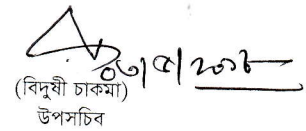 ০৩/৫/২০১৮
(বিদুষী চাকমা)
উপসচিব